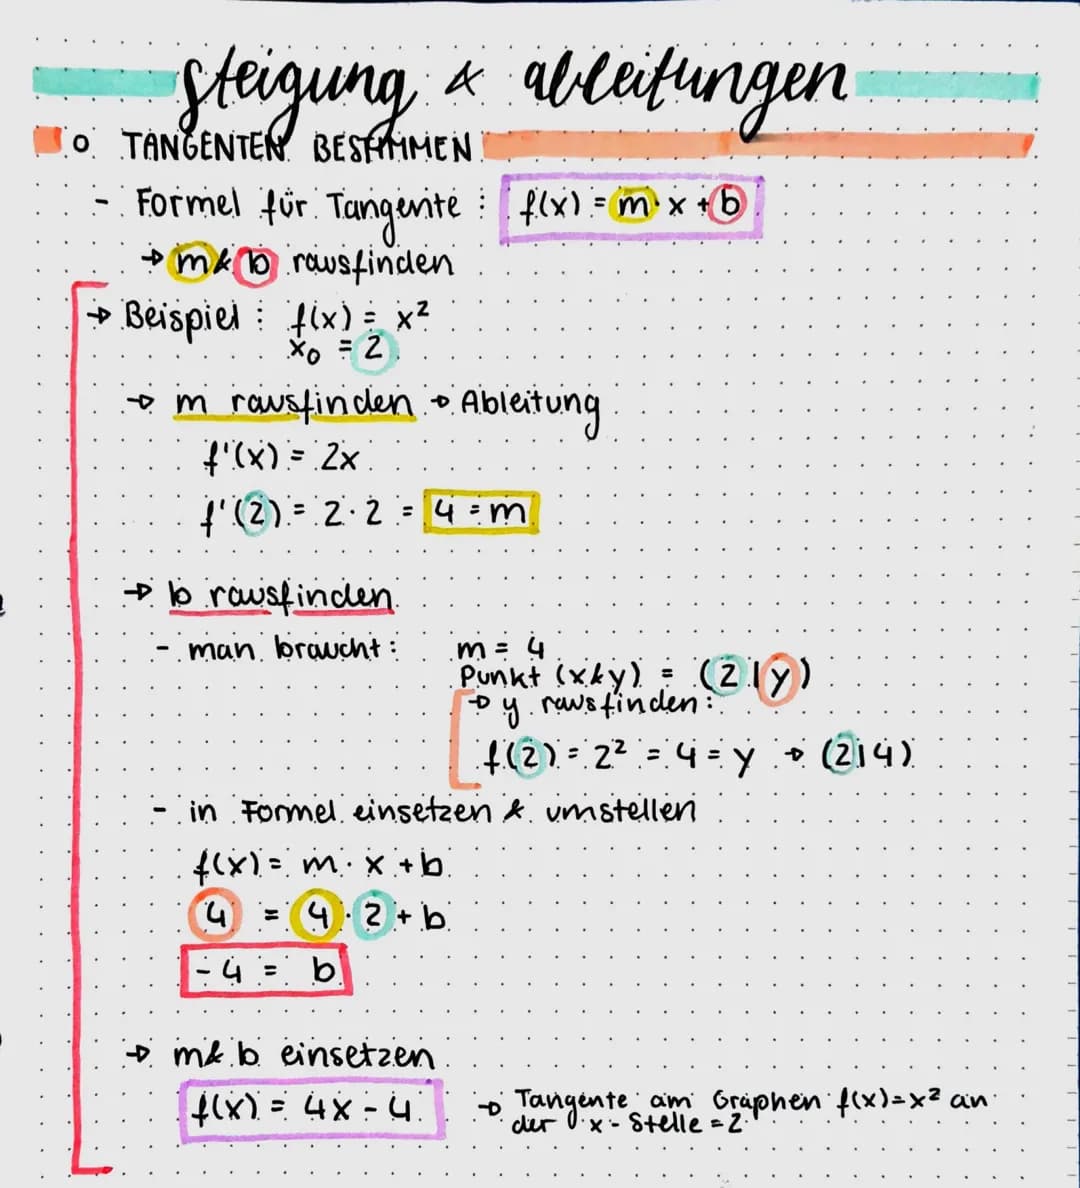 steigung & ableitungen
o TANGENTEN BESTIMMEN
- Formel für Tangente : f(x) = m · x + b
→ m & b rausfinden
→ Beispiel : f(x) = x²
x₀ = 2
→ m rausfinden → Ableitung
f'(x) = 2x
f'(2) = 2 · 2 = 4 = m
→ b rausfinden
- man braucht : m = 4
Punkt (x&y) = (2|y)
→ y rausfinden :
f(2) = 2² = 4 = y → (2|4)
- in Formel einsetzen & umstellen
f(x) = m · x + b
4 = 4 · 2 + b
- 4 = b
→ m & b einsetzen
f(x) = 4x - 4 → Tangente am Graphen f(x)=x² an
der x - Stelle = 2